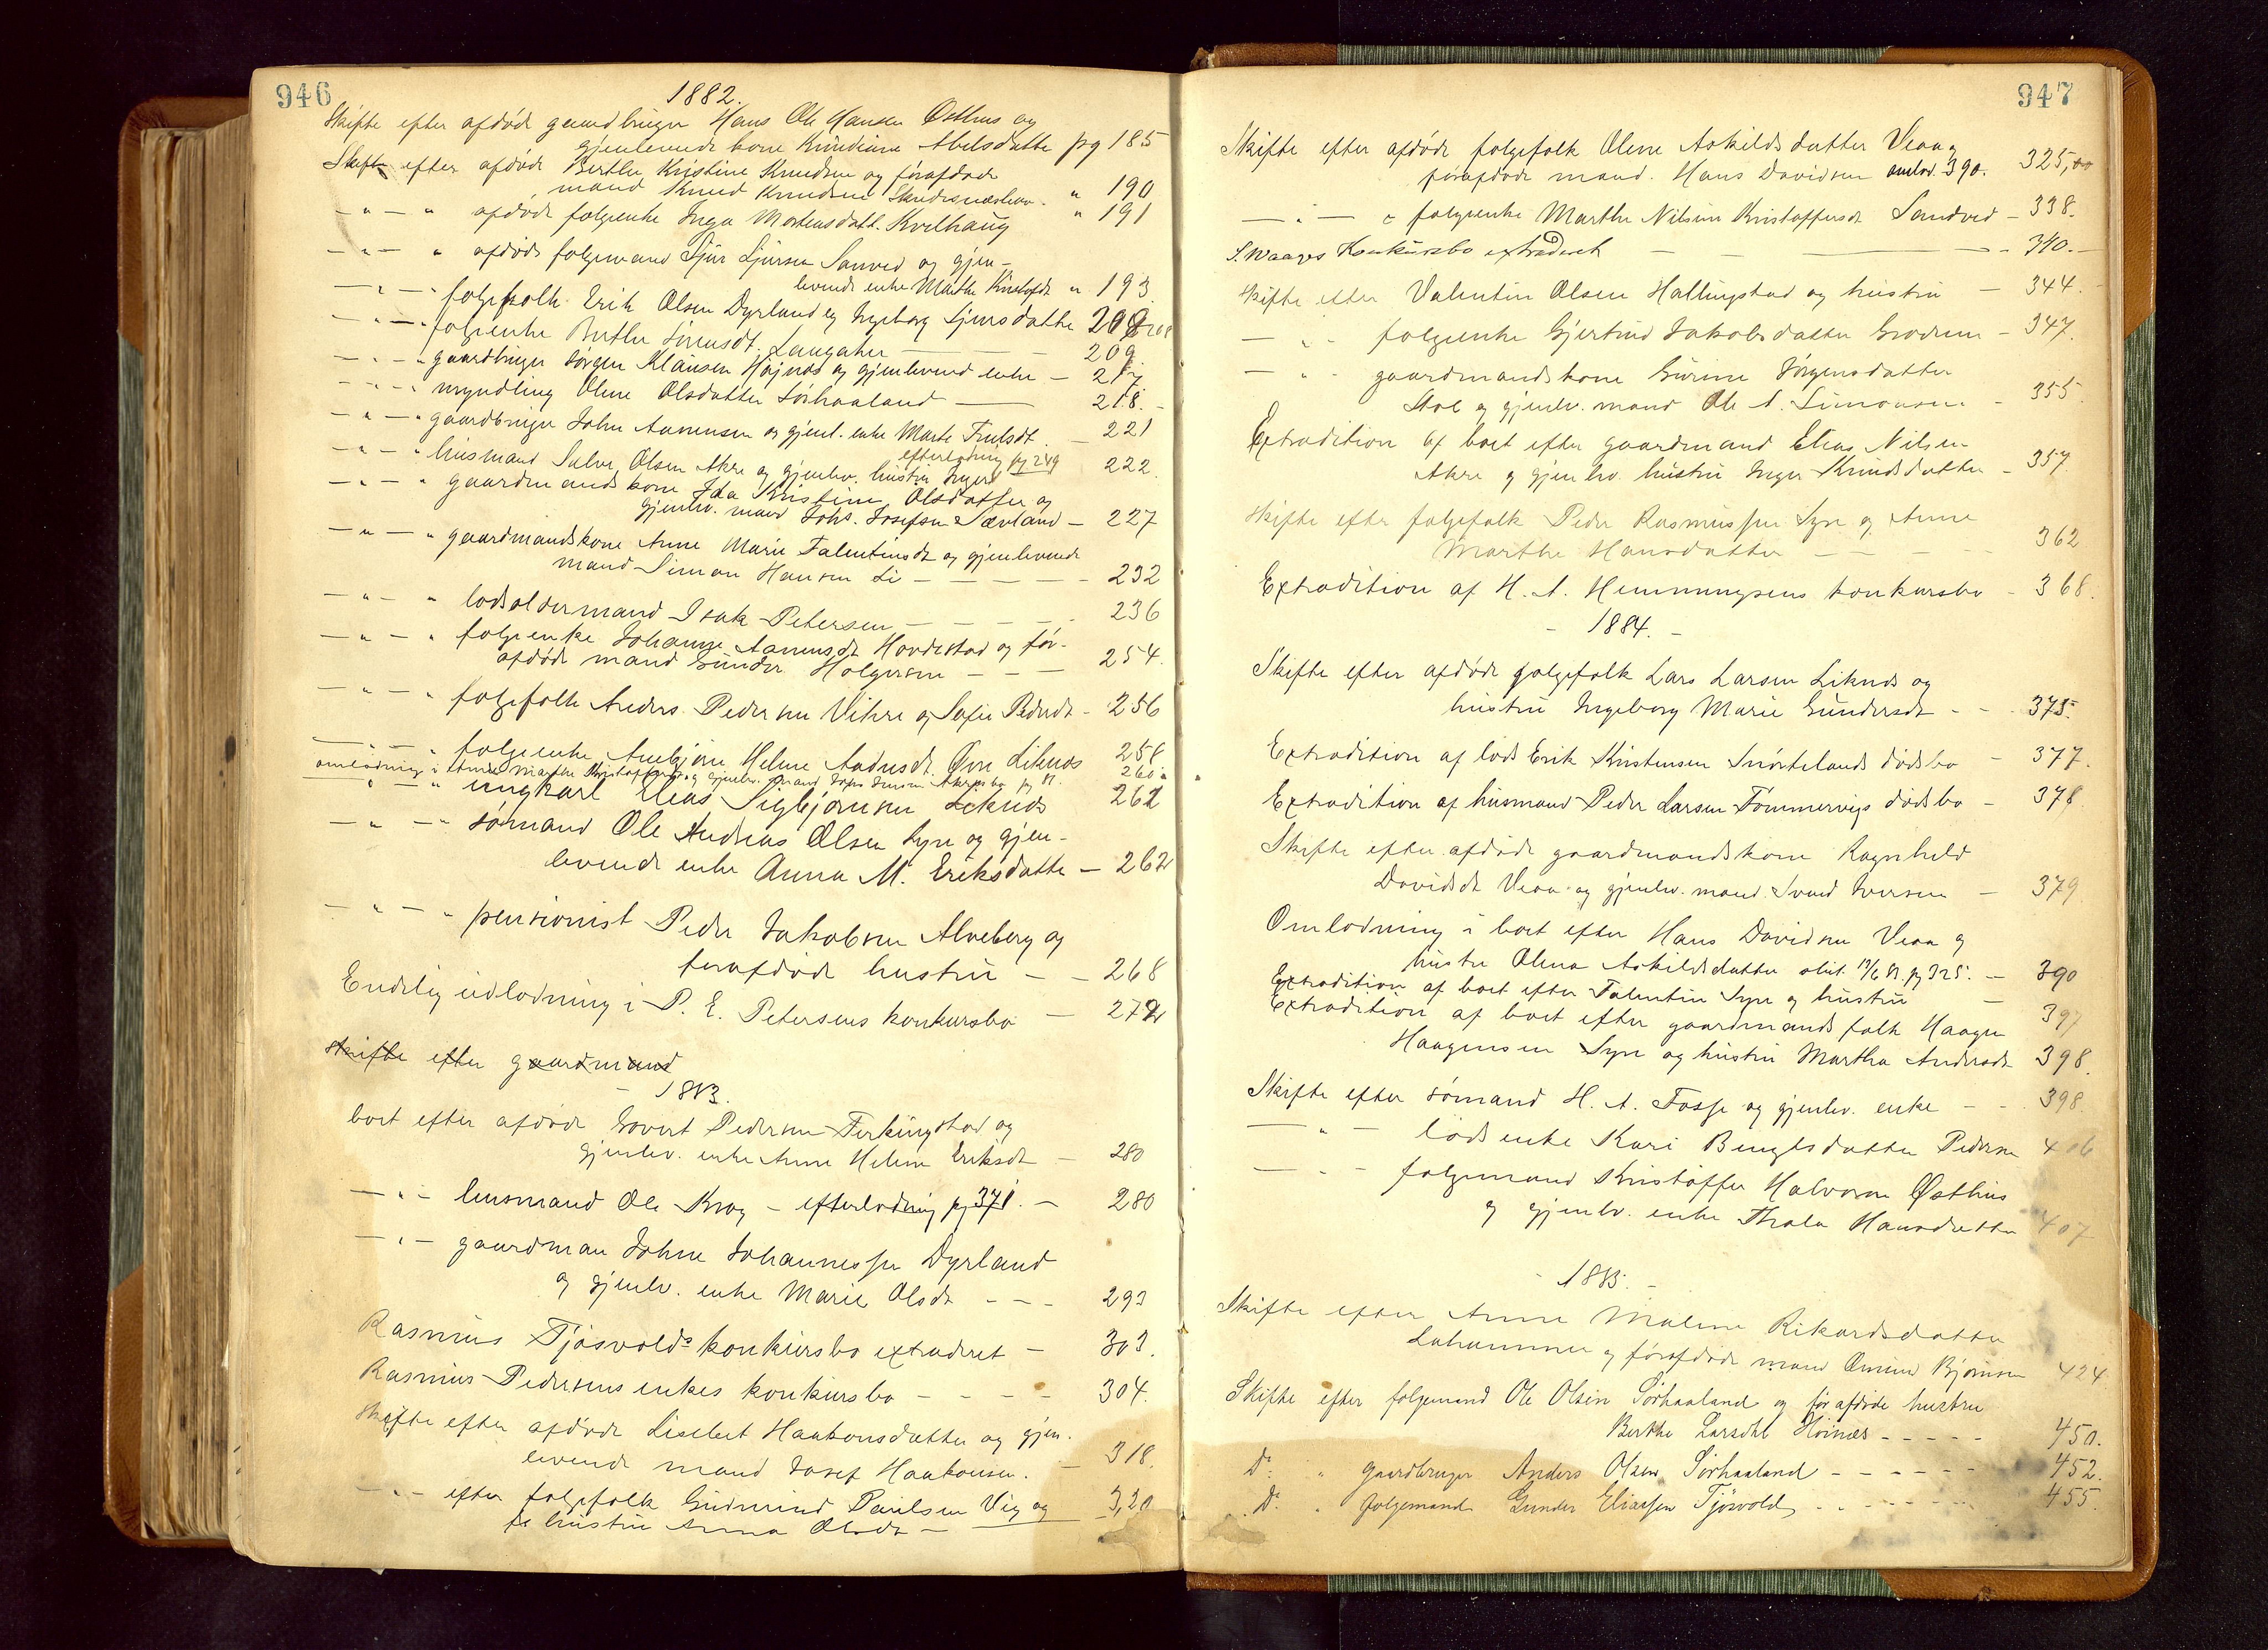 946
1882.
Skifte efter afdøde gaardbruger Hans Ole Hansen Østhus og
gjenlevende kone Abelsdatter pg 185
Skifte efter afdøde Berthe Kristine Knudsen og førafdøde
mand Knud Knudsen " 190
— " — " afdøde folgeenke Inga Mortensdatt. Kvilhaug " 191
— " — " afdøde folgemand Sjur Sjursen Sanved og gjen-
levende enke Marthe Kristofsdt " 193
— " — " folgefolk Erik Olsen Dyrland og Ingeborg Sjursdatter 208
— " — " folgeenke Berthe Sørensdt. Langaker — 209
— " — " gaardbruger Jørgen Klausen Højnæs og gjenlevend enke — 217
— " — " myndling Oline Olsdatter Sørhaaland — 218.
— " — " gaardbruger John Aanensen og gjenl. enke Marte Trulsdt. — 221
efterlodning pg 249
— " — " husmand Salve Olsen Akre og gjenlev. hustru Inger 222.
— " — " gaardmandskone Ida Kristine Olsdatter og
gjenlev. mand Johs. Josefsen Sævland — 227
— " — " gaardmandskone Anne Marie Falentinsdt og gjenlevende
mand Simon Hansen Li — — — — 232
— " — " lodsoldermand Isak Petersen — — — — 236
— " — " folgeenke Johanne Aanensdt Hovdestad og før-
afdøde mand Gunder Holgersen — — — 254.
— " — " folgefolk Anders Pedersen Vikre og Sofie Pedersdt — 256
— " — " folgeenke Anbjørn Helene Andersdt. Øvre Liknes 258
omlodning i Anne Marthe Kristoffersdt og gjenlev. mand 260
" — " ungkarl Elias Sigbjørnsen Liknes 261
— " — " sømand Ole Andreas Olsen Syre og gjen-
levende enke Anna M. Eriksdatter — 262
— " — " pensionist Peder Jakobsen Alveberg og
førafdøde hustru — — 268
Endelig udlodning i P. E. Petersens konkursbo — 272
Skifte efter gaardmand
— 1883.
boet efter afdøde Govert Pedersen Ferkingstad og
gjenlev. enke Anne Helene Eriksdt — 280
— " — husmand Ole Krog — efterlodning pg 371. — 280
— " — gaardman Johne Johannessen Dyrland
og gjenlev. enke Marie Olsdt — — — 293
Rasmus Tjøsvolds konkursbo extraderet — 303.
Rasmus Pedersens enkes konkursbo — — — — 304.
Skifte efter afdøde Lisebet Haakonsdatter og gjen-
levende mand Josef Haakonsen. — 318.
— " — efter folgefolk Gudmund Paulsen Vig og 320
hustru Anna Olsdt —
947
Skifte efter afdøde folgefolk Olene Askildsdatter Veaa og
førafdøde mand. Hans Davidsen omlod. 390. 325,00
— " — " folgeenke Marthe Nilsine Kristoffersdt Sandved — 338.
S. Waages Konkursbo extraderet — — — 340.
Skifte efter Valentin Olsen Hallingstad og hustru — 344.
— " — folgeenke Gjertrud Jakobsdatter Grodem — 347.
— " — gaardmandskone Gurine Jørgensdatter
Stol og gjenlev. mand Ole A. Simonsen — 355.
Extradition af boet efter gaardmand Elias Nilsen
Akre og gjenlev. hustru Inger Knudsdatter — 357
Skifte efter folgefolk Peder Rasmussen Syre og Anne
Marthe Hansdatter — — — — 362
Extradition af H. A. Hemmingsens konkursbo — 368.
— 1884. —
Skifte efter afdøde folgefolk Lars Larsen Liknes og
hustru Ingeborg Marie Gundersdt — — 375.
Extradition af lods Erik Kristensen Snørtelands dødsbo — 377.
Extradition af husmand Peder Larsen Tømmervigs dødsbo — 378
Skifte efter afdøde gaardmandskone Ragnhild
Davidsdt Veaa og gjenlev. mand. Svend Iversen — 379.
Omlodning i boet efter Hans Davidsen Veaa og
hustru Olena Askildsdatter slut. pg 325. — 390
Extradition af boet efter Falentin Syre og hustru — 397
Extradition af boet efter gaardmandsfolk Haagen
Haagensen Syre og hustru Martha Andersdt 398.
Skifte efter sømand H. A. Fosse og gjenlev. enke — — 398.
— " — lods enke Kari Bengtsdatter Pedersen 406
— " — folgemand Kristoffer Halvorsen Østhus
og gjenlev. enke Thala Hansdatter 407
— 1885. —
Skifte efter Anne Malene Rikardsdatter
Lahammer og førafdøde mand Omund Bjørnsen 424
Skifte efter folgemand Ole Olsen Sørhaaland og førafdøde hustru
Berthe Larsdtr Høinæs — — — — — 450.
Do. " gaardbruger Anders Olsen Sørhaaland — — — — — 452.
Do. " folgemand Gunder Eliassen Tjøsvold — — — — — 455.